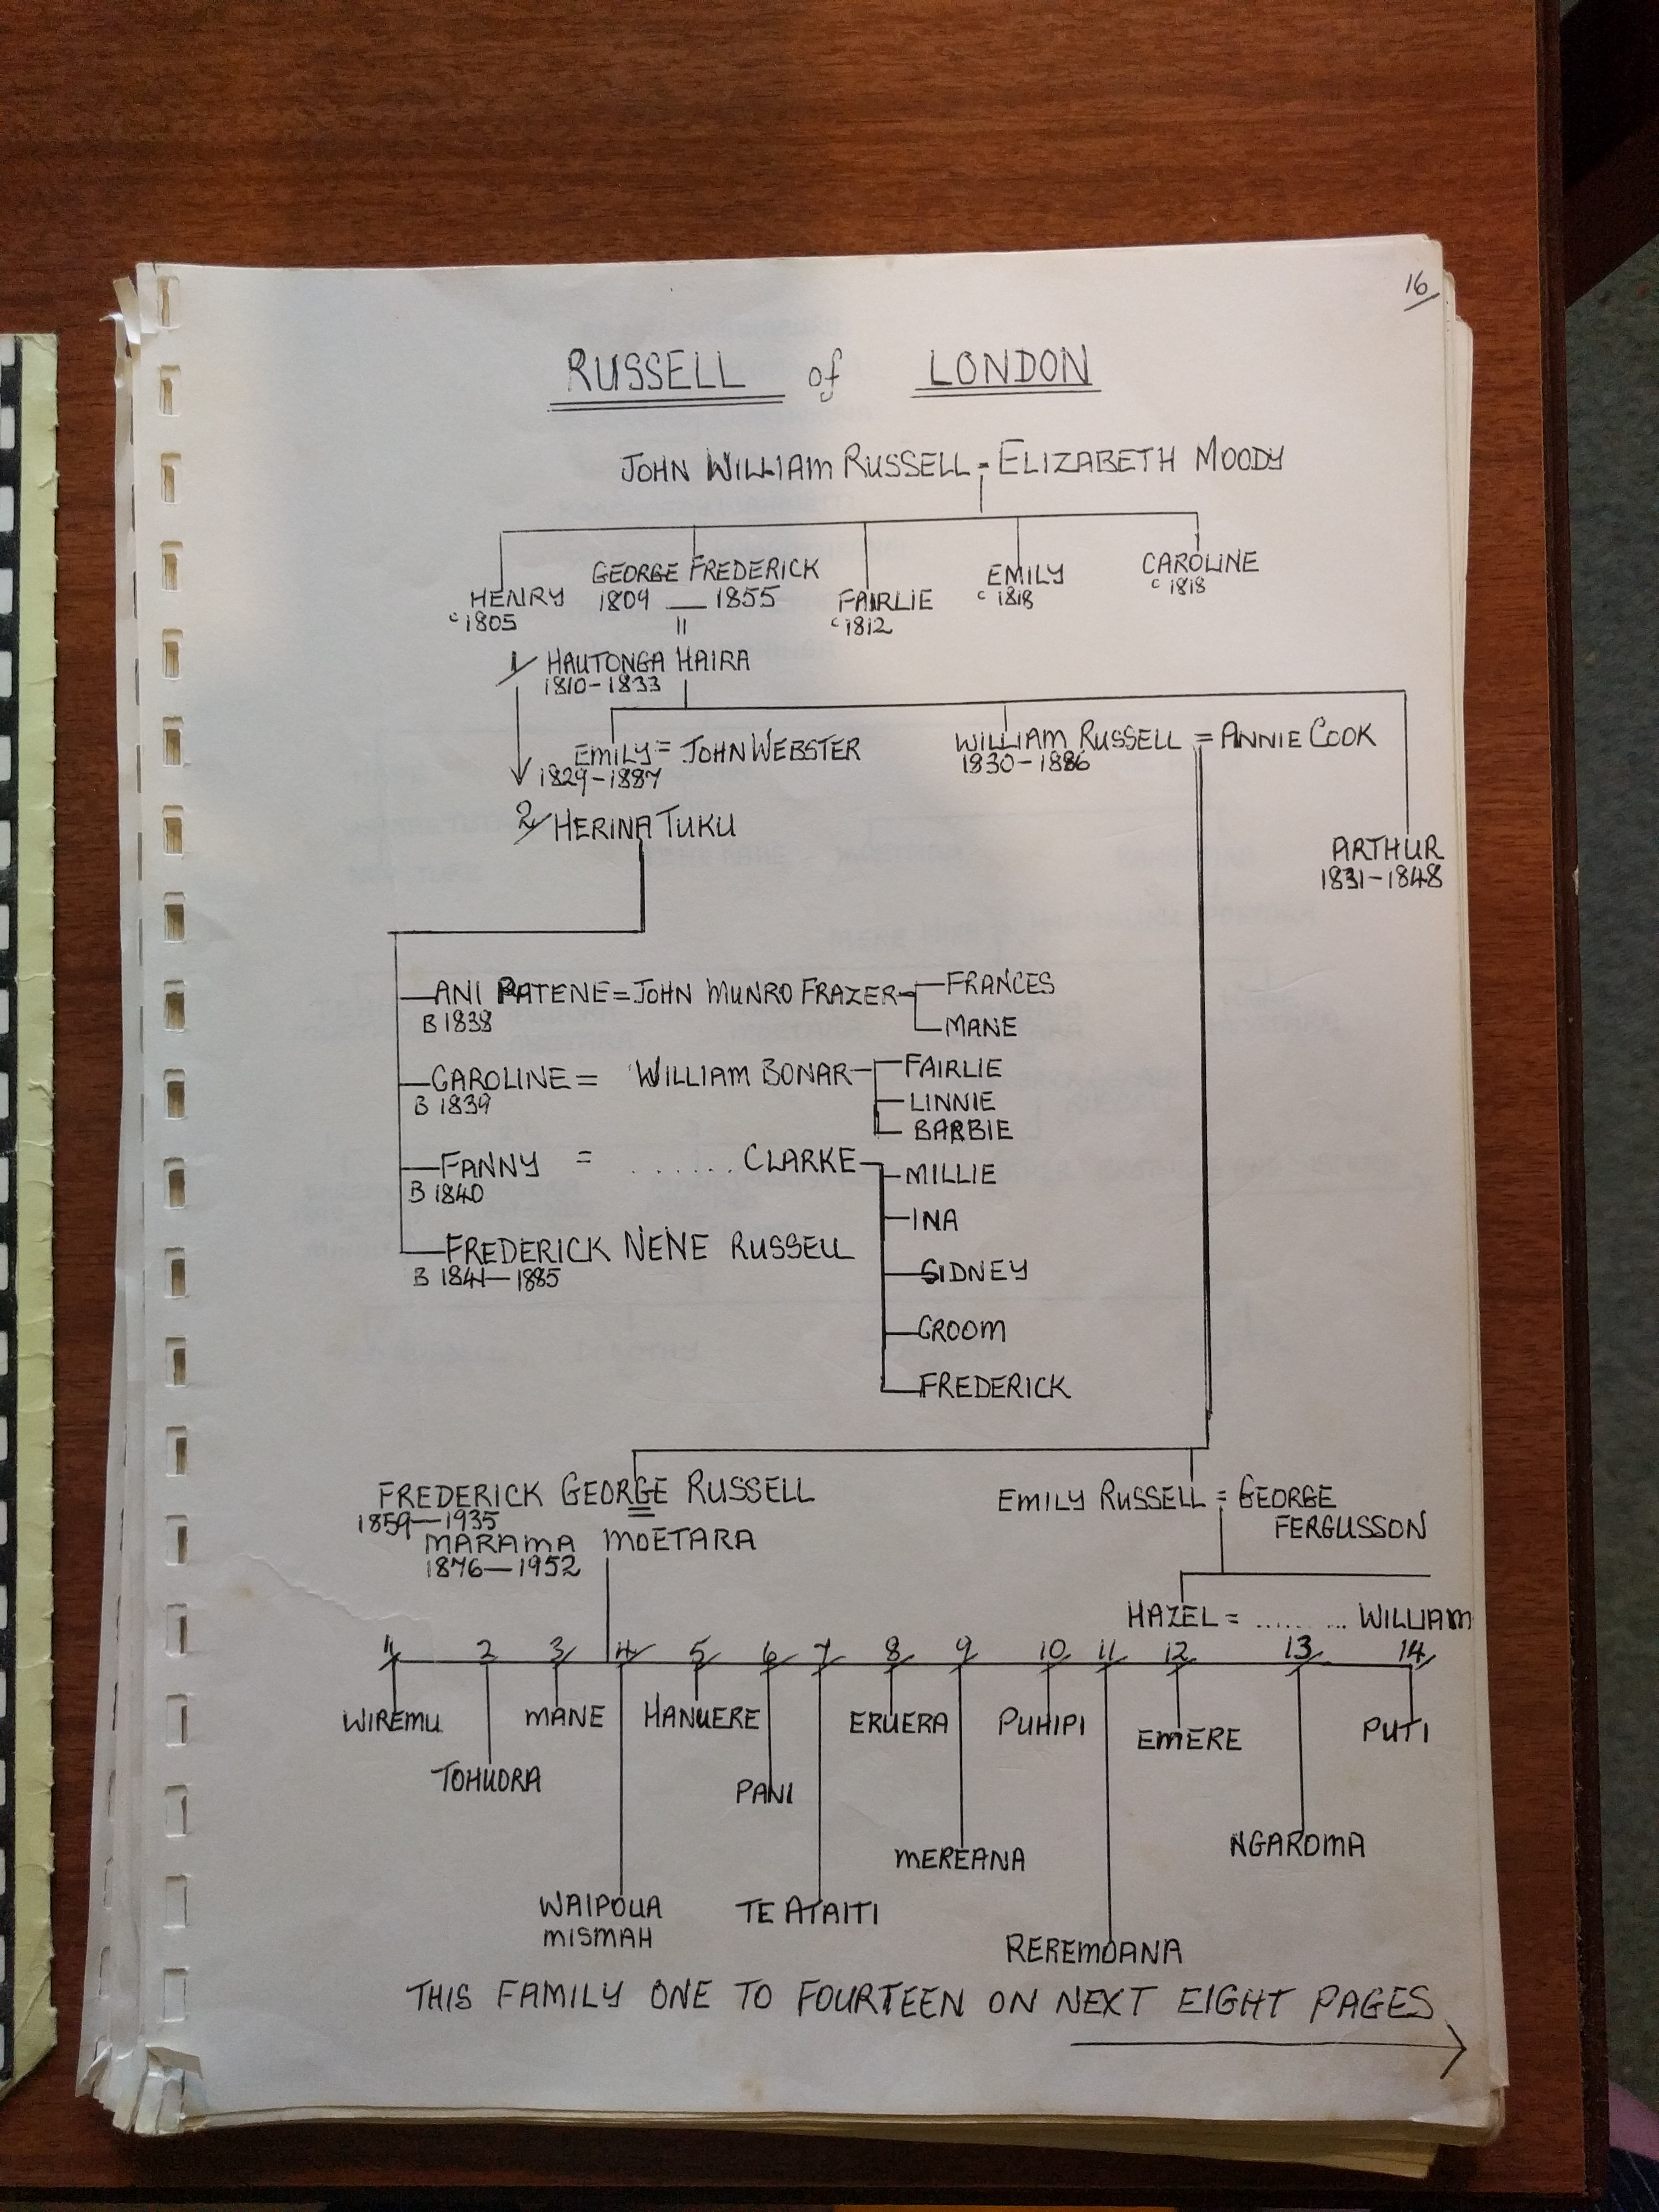 16
RUSSELL of LONDON
JOHN WILLIAM RUSSELL = ELIZABETH MOODY
HENRY
c 1805
GEORGE FREDERICK
1809 — 1855
FAIRLIE
c 1812
EMILY
c 1818
CAROLINE
c 1818
1/ HAUTONGA HAIRA
1810-1833
EMILY = JOHN WEBSTER
1829-1887
WILLIAM RUSSELL = ANNIE COOK
1830-1886
ARTHUR
1831-1848
2/ HERINA TUKU
ANI PATENE = JOHN MUNRO FRAZER
B 1838
FRANCES
MANE
CAROLINE = WILLIAM BONAR
B 1839
FAIRLIE
LINNIE
BARBIE
FANNY = ....... CLARKE
B 1840
MILLIE
INA
SIDNEY
GROOM
FREDERICK
FREDERICK NENE RUSSELL
B 1841-1885
FREDERICK GEORGE RUSSELL
1859-1935
=
MARAMA MOETARA
1876-1952
EMILY RUSSELL = GEORGE
FERGUSSON
HAZEL = ......... WILLIAM
1/ 2 3/ 4/ 5/ 6/ 7/ 8/ 9/ 10/ 11/ 12/ 13/ 14/
WIREMU
TOHUORA
MANE
WAIPOUA
MISMAH
HANUERE
PANI
TE ATAITI
ERUERA
MEREANA
PUHIPI
REREMOANA
EMERE
NGAROMA
PUTI
THIS FAMILY ONE TO FOURTEEN ON NEXT EIGHT PAGES